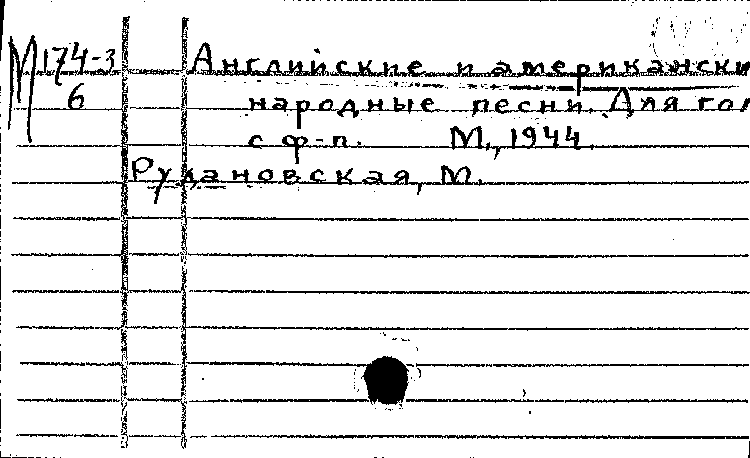 М 174-3
6
Английские и американски
народные песни. Для гол
с ф-п. М., 1944.
Рудановская, М.